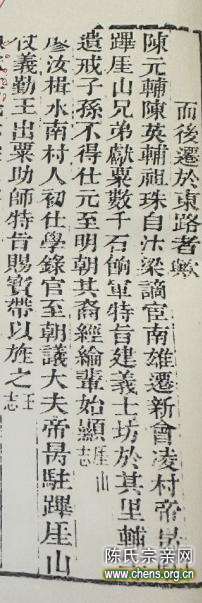 而後遷於東路者歟
陳元輔陳英輔祖珠自汴梁謫宦南雄遷新會凌村帝昺
蹕厓山兄弟獻粟數千石餉軍特旨建義士坊於其里輔
遺戒子孫不得仕元至明朝其裔經綸輩始顯厓山志
廖汝楫水南村人初仕學錄官至朝議大夫帝昺駐蹕厓山
仗義勤王出粟助師特旨賜寶帶以旌之王志
陈氏宗亲网
www.chens.org.cn